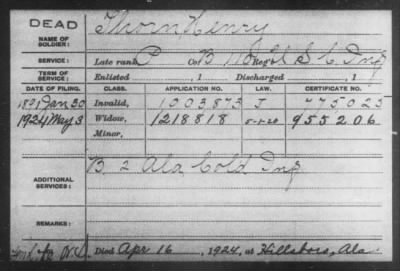 DEAD
NAME OF SOLDIER: Thorn Henry
SERVICE: Late rank P Co. B 110 Reg't U S C Inf
TERM OF SERVICE: Enlisted , 1 Discharged , 1
DATE OF FILING. CLASS. APPLICATION NO. LAW. CERTIFICATE NO.
1891 Jan 30 Invalid, 1003873 J 775025
1924 May 3 Widow, 1218818 5-1-20 955206
Minor,
ADDITIONAL SERVICES: B 2 Ala Cold Inf
REMARKS:
Died Apr 16, 1924, at Hillsboro, Ala